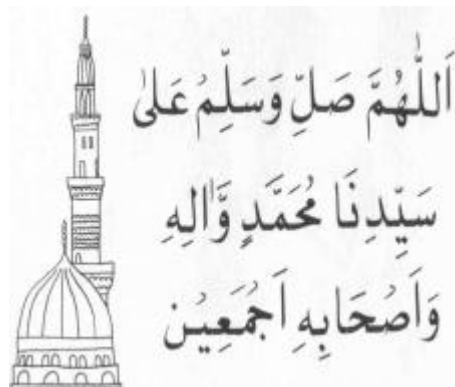 اَللّٰهُمَّ صَلِّ وَسَلِّمْ عَلٰى
سَيِّدِنَا مُحَمَّدٍ وَّاٰلِهِ
وَاَصْحَابِهِ اَجْمَعِيْن